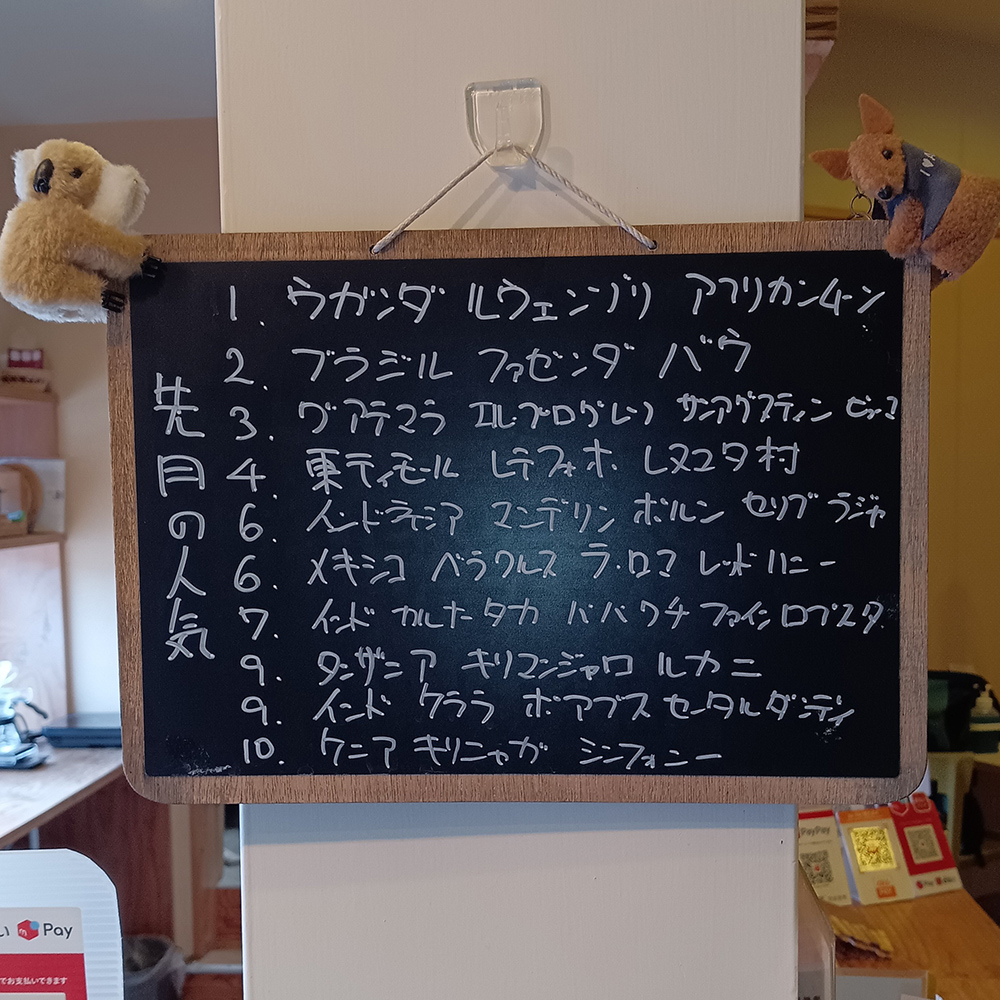 先月の人気
1. ウガンダ ルウェンゾリ アフリカンムーン
2. ブラジル ファゼンダ バウ
3. グアテマラ エル・プログレソ サンアグスティン ピッコ
4. 東ティモール レテフォホ レヌコタ村
6. インドネシア マンデリン ボルン セリブ ラジャ
6. メキシコ ベラクルス ラ・ロマ レッドハニー
7. インド カルナータカ ババウチ ファインロブスタ
9. タンザニア キリマンジャロ ルカニ
9. インド ケララ ポアブス セータルダンディ
10. ケニア キリニャガ シンフォニー
I ♥
Pay
でお支払いできます
PayPay
Pay